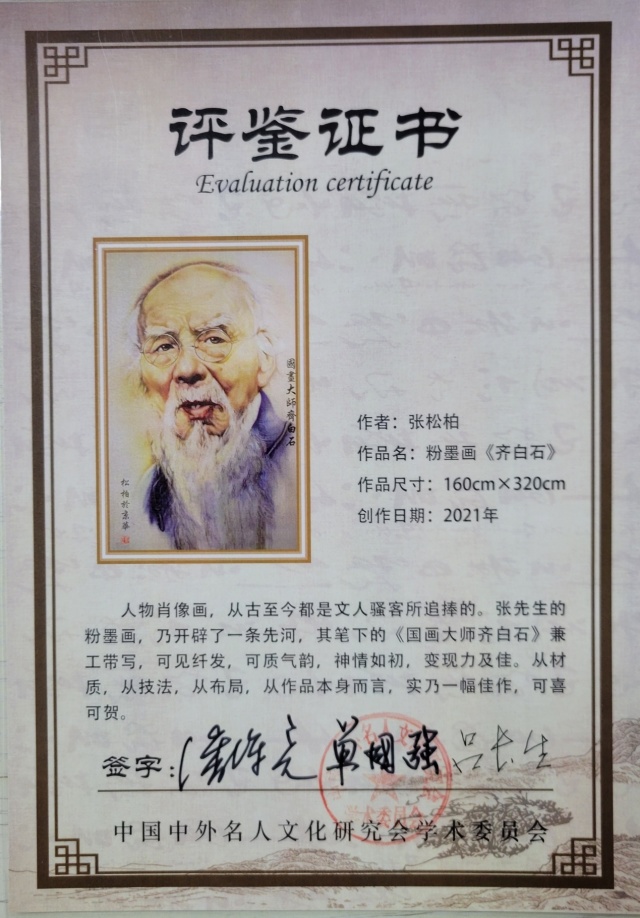 评鉴证书
Evaluation certificate
國畫大师齊白石
作者：张松柏
作品名：粉墨画《齐白石》
作品尺寸：160cm×320cm
创作日期：2021年
人物肖像画，从古至今都是文人骚客所追捧的。张先生的
粉墨画，乃开辟了一条先河，其笔下的《国画大师齐白石》兼
工带写，可见纤发，可质气韵，神情如初，变现力及佳。从材
质，从技法，从布局，从作品本身而言，实乃一幅佳作，可喜
可贺。
签字：
中国中外名人文化研究会学术委员会